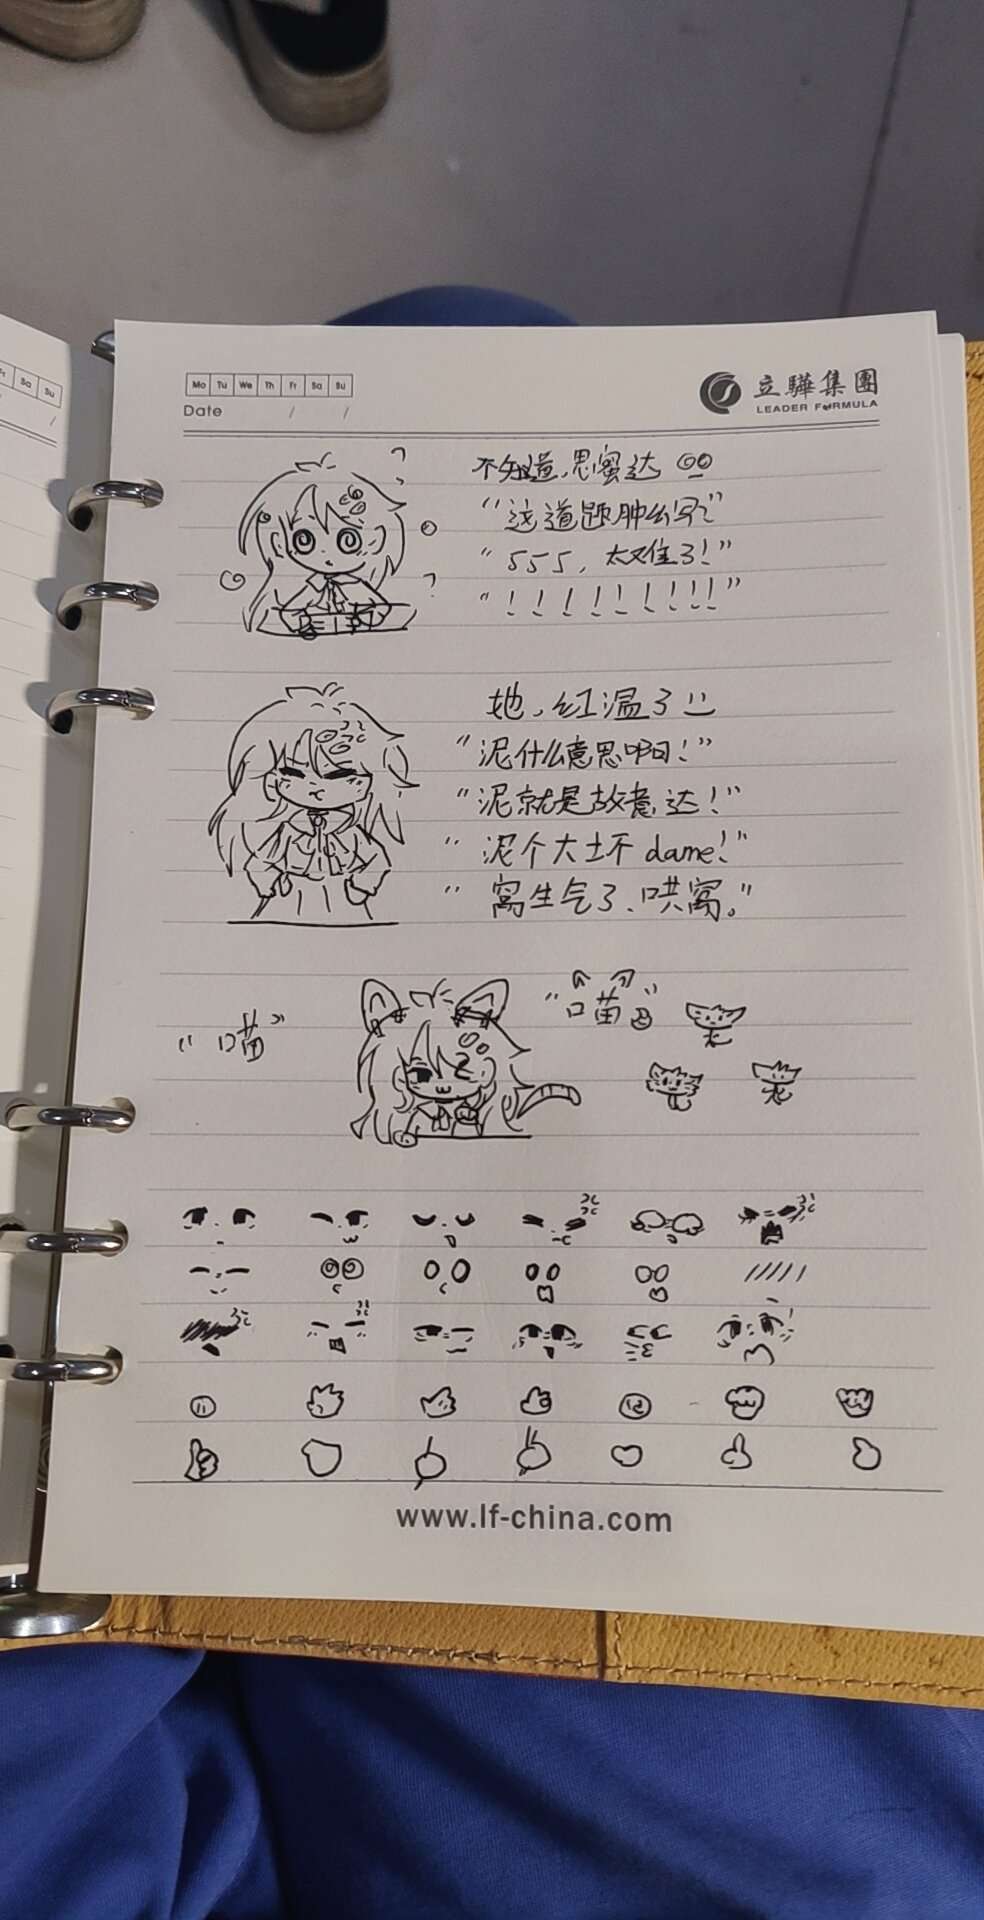 Fr Sa Su
/
Mo Tu We Th Fr Sa Su
Date / /
立驊集團
LEADER FORMULA
不知道,思蜜达
"这道题肿么写?"
"555,太难了!"
"!!!!!!!!!"
她,红温了
"泥什么意思啊!"
"泥就是故意达!"
"泥个大坏dame!"
"窝生气了、哄窝。"
"喵"
"喵"
www.lf-china.com